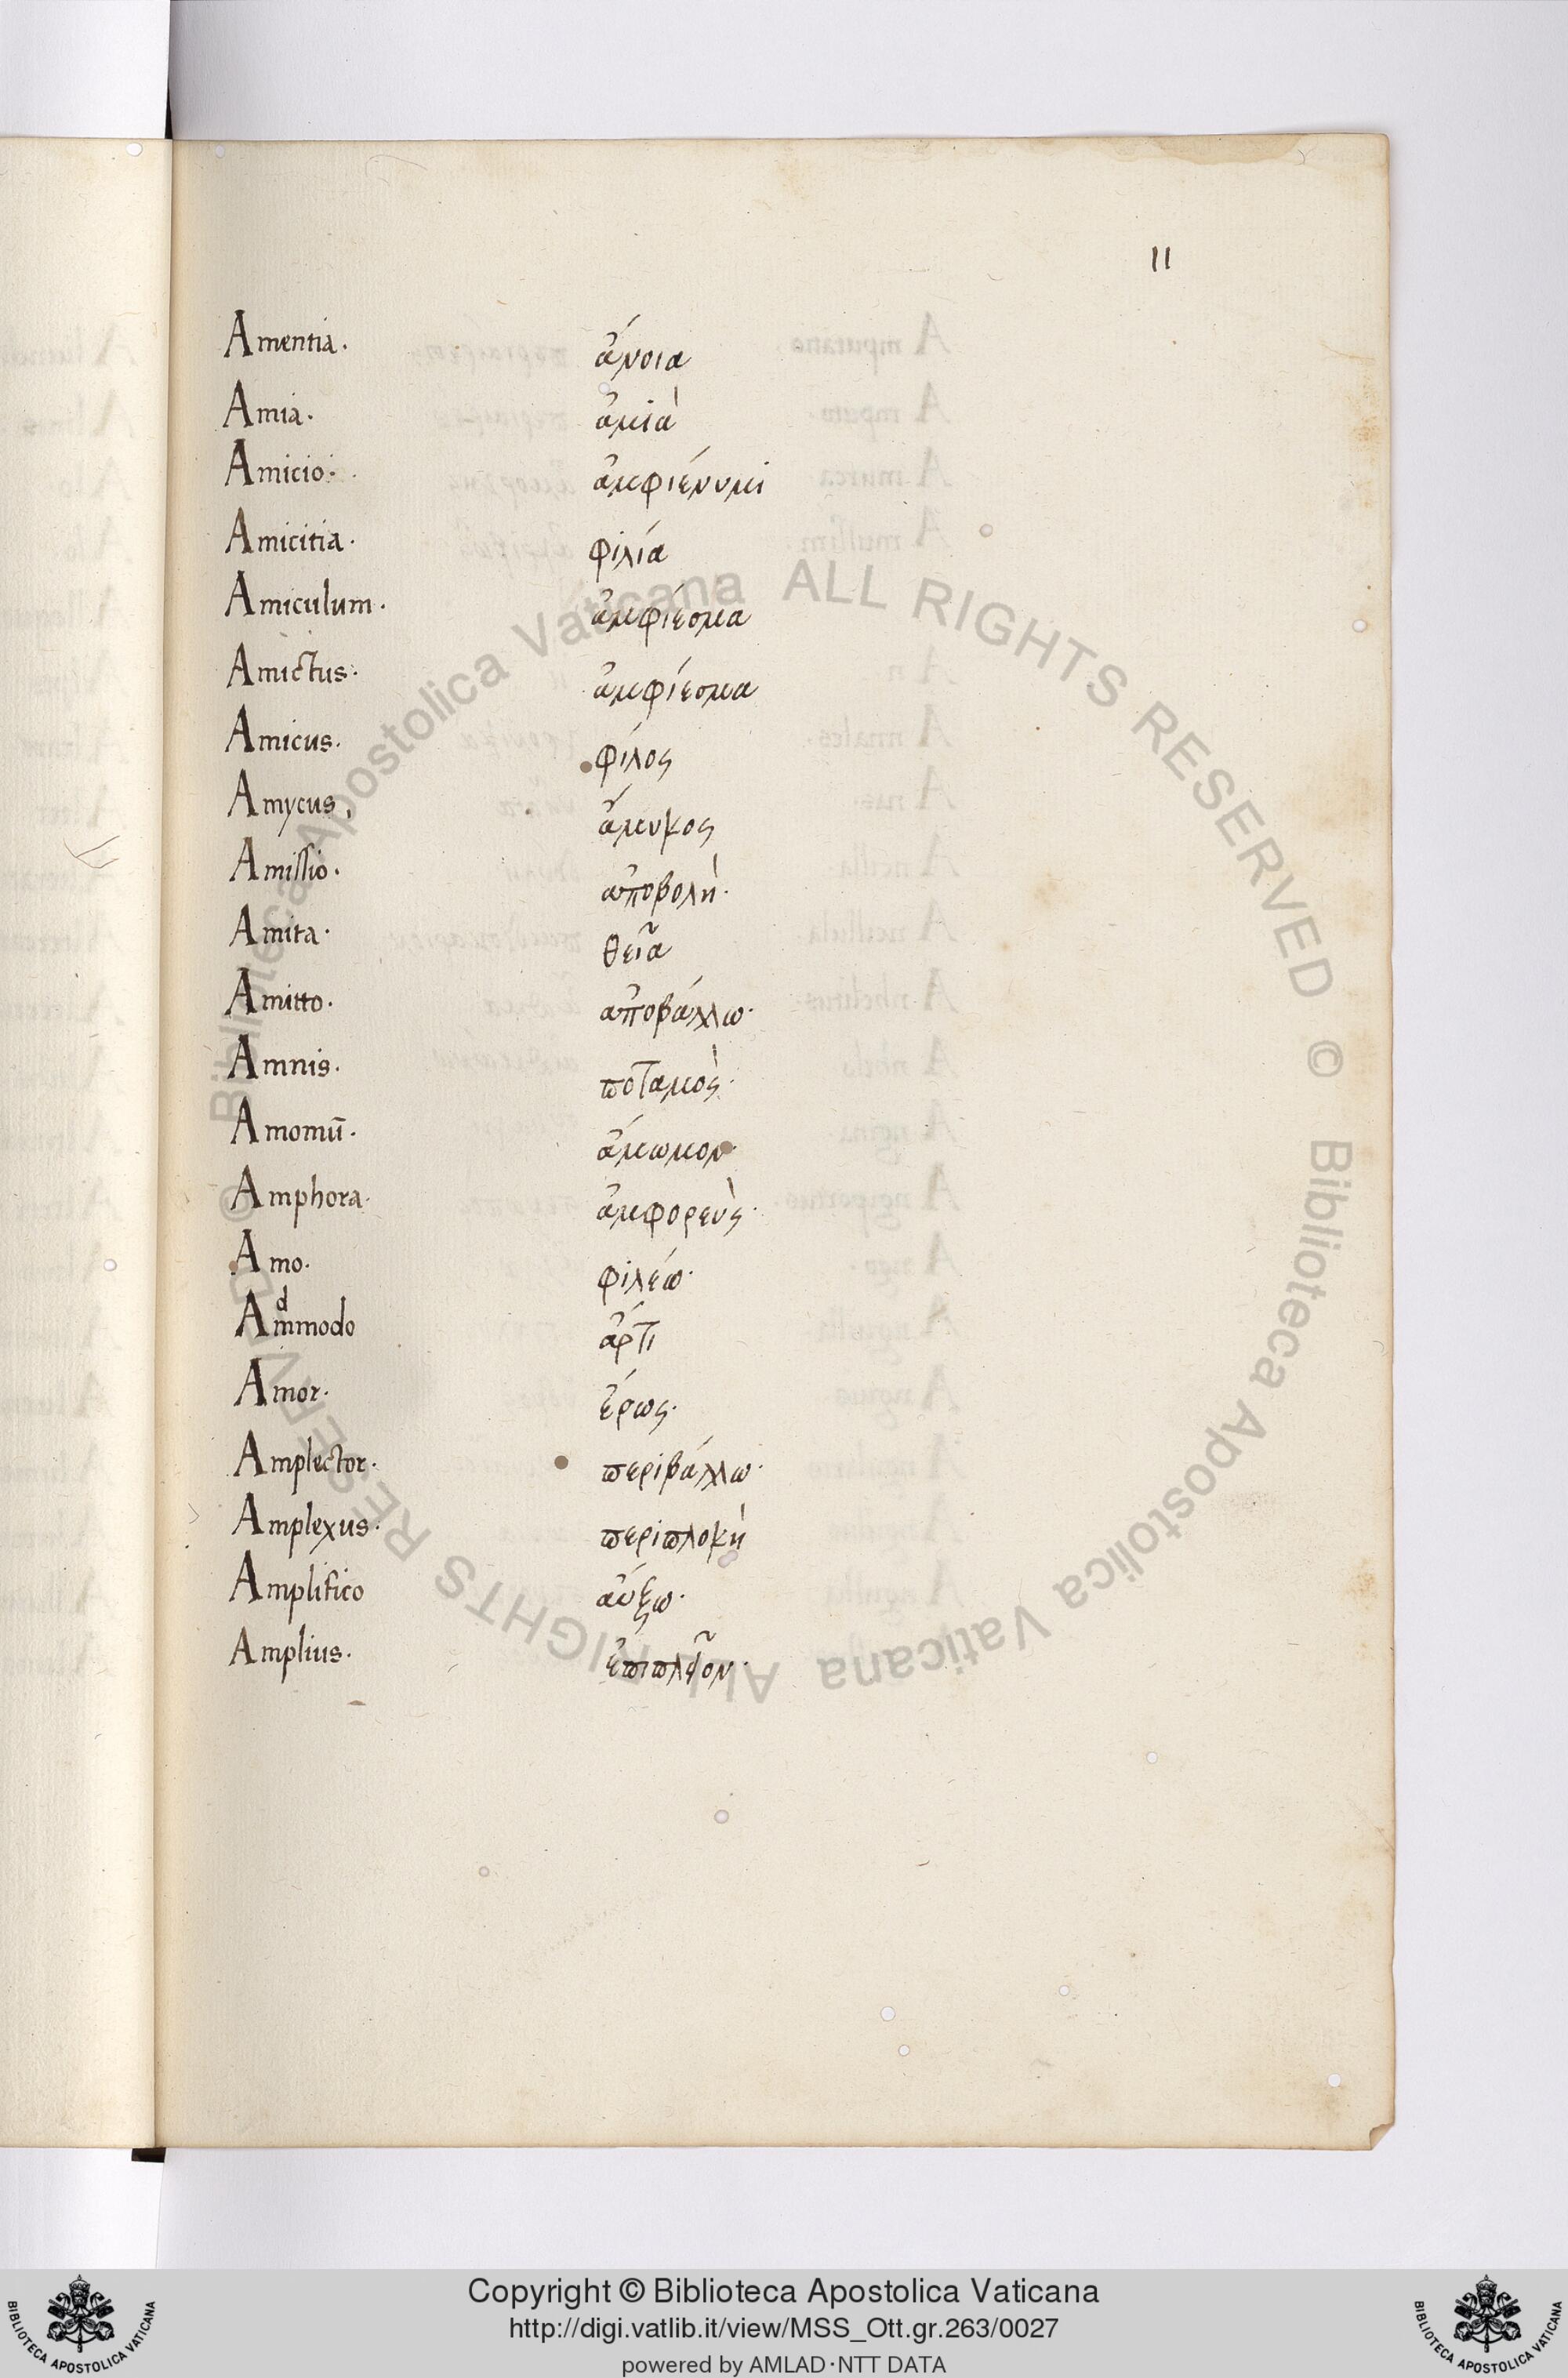 11
Amentia. ἄνοια
Amia. ἀμιὰ
Amicio. ἀμφιένυμι
Amicitia. φιλία
Amiculum. ἀμφίεσμα
Amictus. ἀμφίεσμα
Amicus. φίλος
Amycus, ἄμυκος
Amissio. ἀποβολὴ.
Amita. θεῖα
Amitto. ἀποβάλλω.
Amnis. ποταμὸς.
Amomū. ἄμωμον.
Amphora. ἀμφορεὺς.
Amo. φιλέω.
Admmodo ἄρτι
Amor. ἔρως.
Amplector. περιβάλλω.
Amplexus. περιπλοκὴ
Amplifico αύξω.
Amplius. ἐπιπλεῖον.
© Biblioteca Apostolica Vaticana ALL RIGHTS RESERVED
© Biblioteca Apostolica Vaticana ALL RIGHTS RESERVED
Copyright © Biblioteca Apostolica Vaticana
http://digi.vatlib.it/view/MSS_Ott.gr.263/0027
powered by AMLAD·NTT DATA
BIBLIOTECA APOSTOLICA VATICANA
BIBLIOTECA APOSTOLICA VATICANA